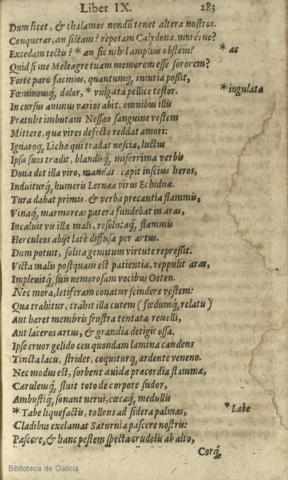 Liber IX. 283
Dum licet, & thalamos nondũ tenet altera nostros.
Conquerar, an sileam? repetam Calydona, morérne?
Excedam tectu? * an sic nihil amplius obstem? * as
Quid si me Meleagre tuam memorem esse sororem?
Forte paro facinus, quantumq, iniuria poßit,
Fœmineusq, dolor, * vulgata pellice testor. * iugulata
In cursus animus varios abit. omnibus illis
Prætulit imbutam Nessæo sanguine vestem
Mittere, quæ vires defecto reddat amori:
Ignaroq, Lichæ qui tradat nescia, luctus
Ipsa suos tradit, blandisq, miserrima verbis
Dona det illa viro, mandat. capit inscius heros,
Induiturq, humeris Lernææ virus Echidnæ.
Tura dabat primis, & verba precantia flammis,
Vinaq, marmoreas patera fundebat in aras,
Incaluit vis illa mali, resolutaq, flammis
Herculeos abijt latè diffusa per artus.
Dum potuit, solita gemitum virtute repressit.
Victa malis postquam est patientia, reppulit aras,
Impleuitq, suis nemorosam vocibus Oeten.
Nec mora, letiferam conatur scindere vestem:
Qua trahitur, trahit illa cutem (fœdumq, relatu)
Aut hæret membris frustra tentata reuelli,
Aut laceros artus, & grandia detigit ossa,
Ipse cruor gelido ceu quondam lamina candens
Tincta lacu, stridet, coquiturq, ardente veneno.
Nec modus est, sorbent auidæ præcordia flammæ,
Cæruleusq, fluit toto de corpore sudor,
Ambustiq, sonant nerui, cæcaq, medullis
* Tabe liquefactis, tollens ad sidera palmas, * Labe
Cladibus exclamat Saturnia pascere nostris:
Pascere, & hanc pestem specta crudelis ab alto,
Corq́,
Biblioteca de Galicia